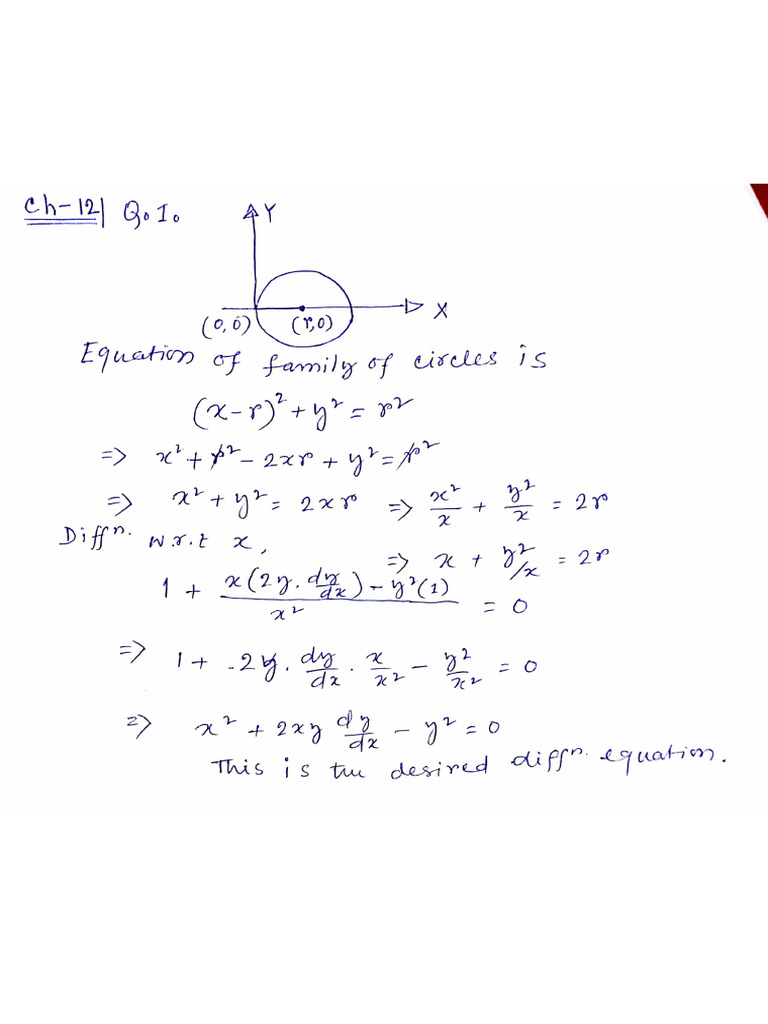 Ch-12| Q.1.
Y
X
(0,0) (r,0)
Equation of family of circles is
(x-r)² + y² = r²
=> x² + r² - 2xr + y² = r²
=> x² + y² = 2xr => x²/x + y²/x = 2r
Diffn. w.r.t x, => x + y²/x = 2r
1 + (x(2y. dy/dx) - y²(1))/x² = 0
=> 1 + 2y. dy/dx . x/x² - y²/x² = 0
=> x² + 2xy dy/dx - y² = 0
This is the desired diffn. equation.